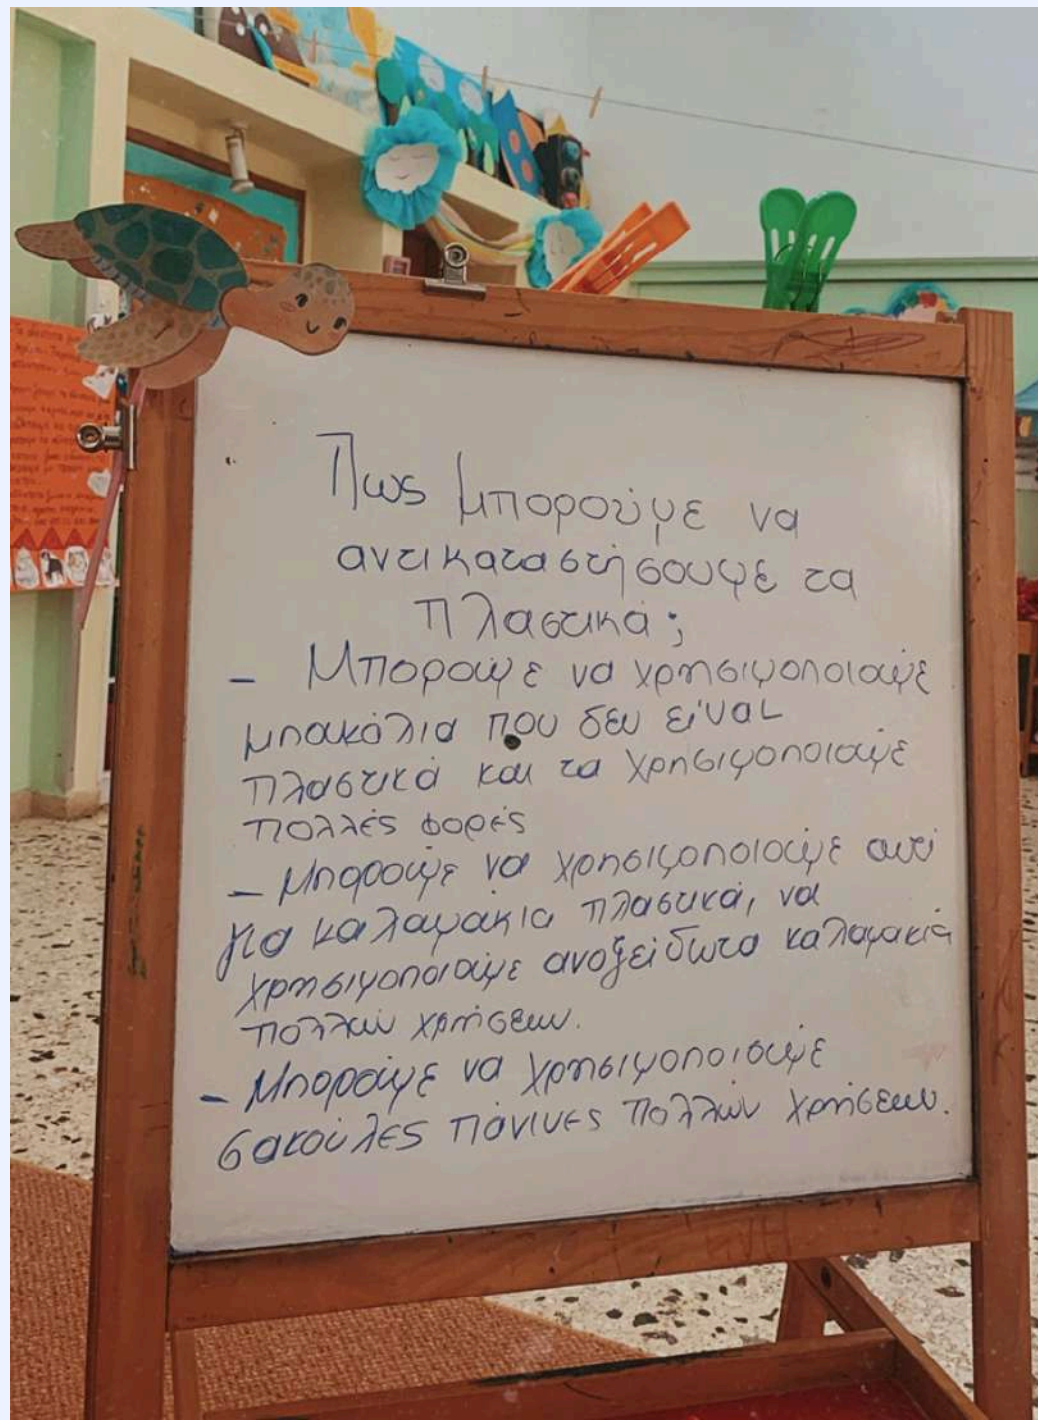 Πως μπορούμε να
αντικαταστήσουμε τα
πλαστικά;
- Μπορούμε να χρησιμοποιούμε
μπακάλια που δεν είναι
πλαστικά και τα χρησιμοποιούμε
πολλές φορές
- Μπορούμε να χρησιμοποιούμε αντί
για καλαμάκια πλαστικά, να
χρησιμοποιούμε ανοξείδωτα καλαμάκια
πολλών χρήσεων.
- Μπορούμε να χρησιμοποιούμε
σακούλες πάνινες πολλών χρήσεων.